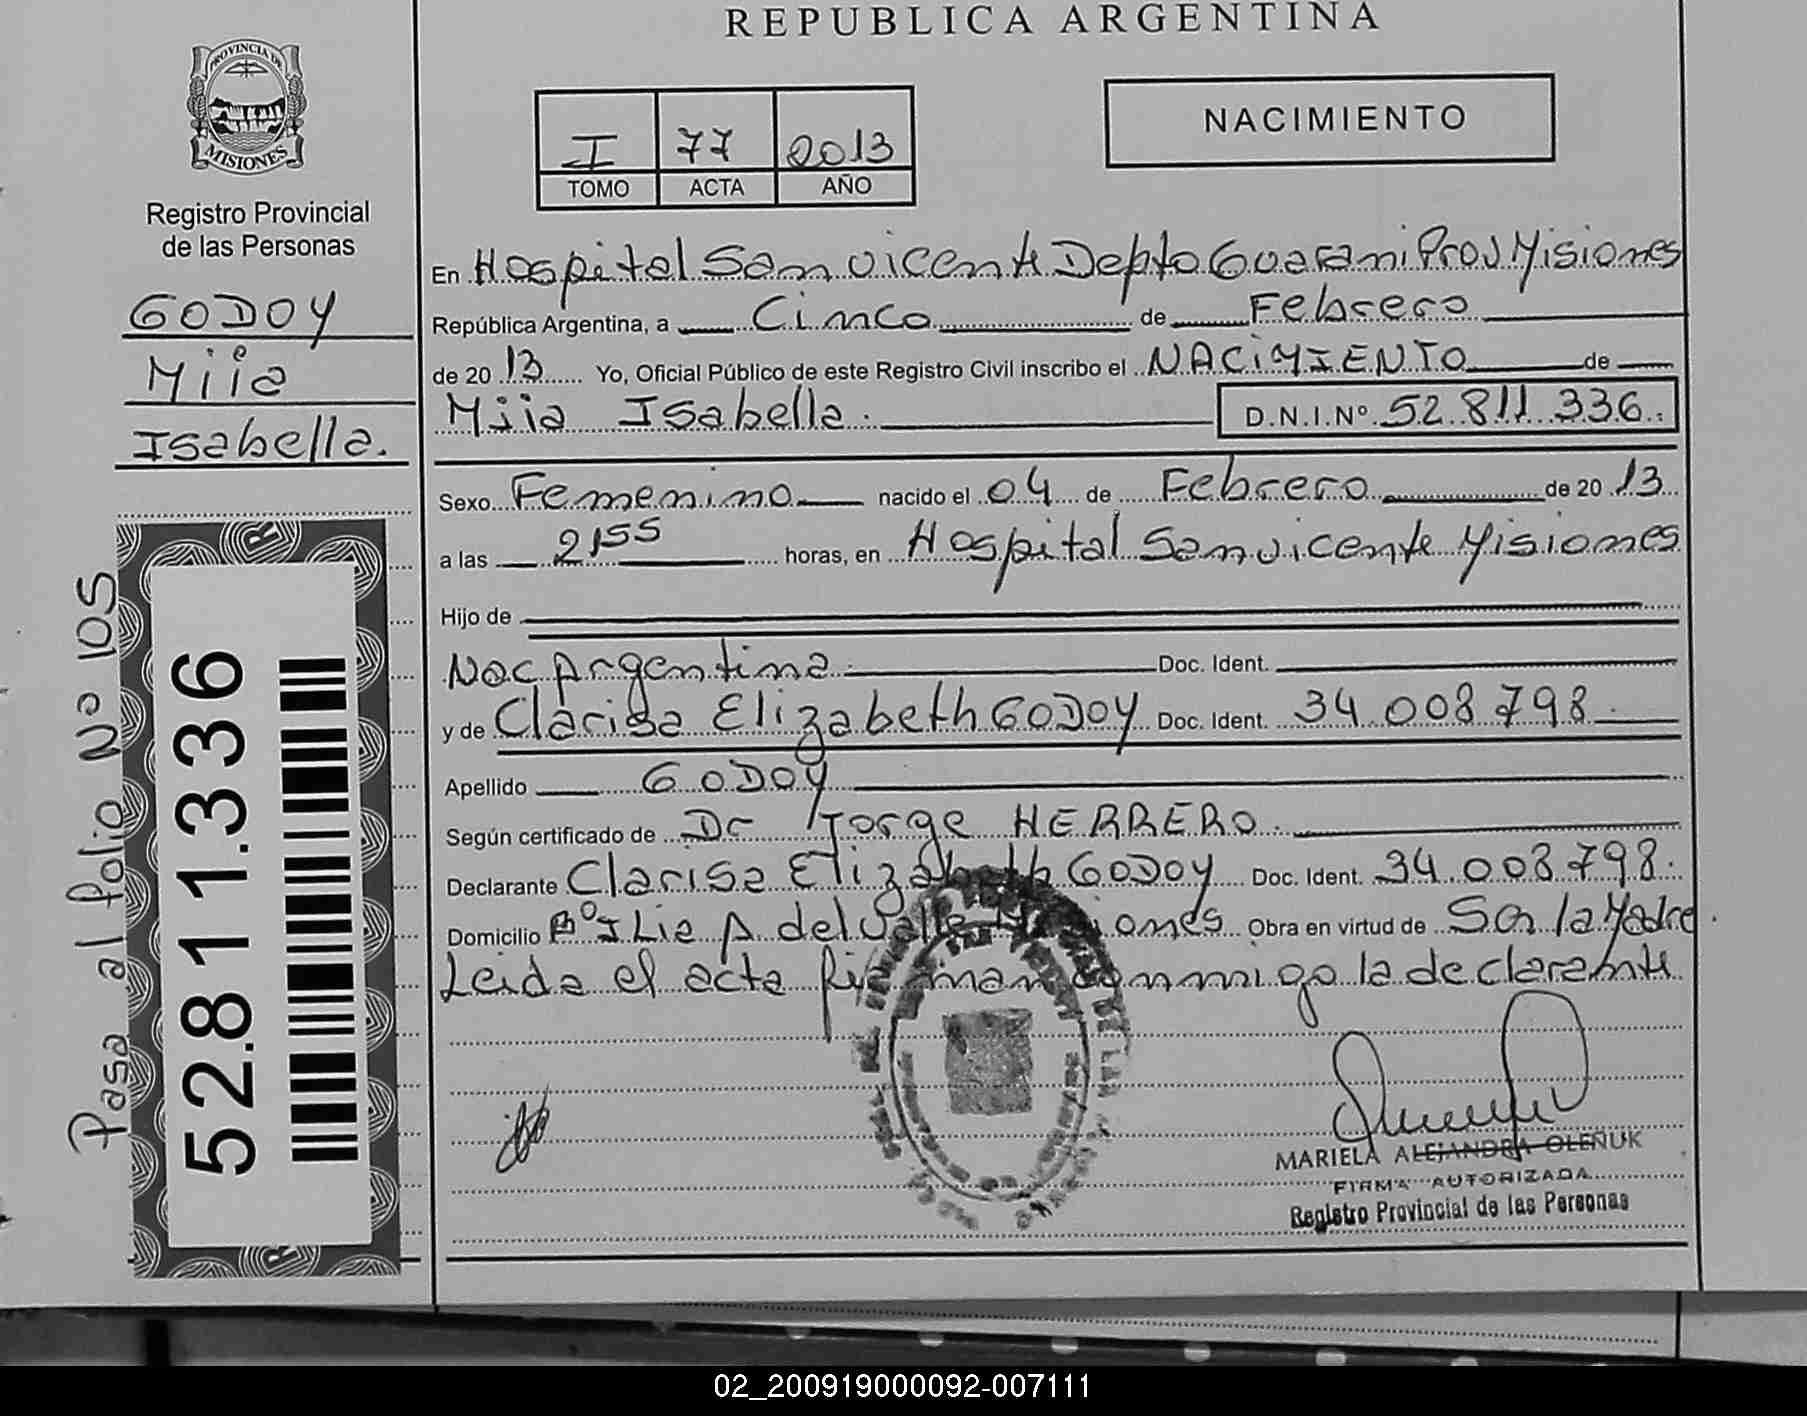 REPUBLICA ARGENTINA
PROVINCIA DE
MISIONES
Registro Provincial
de las Personas
GODOY
Miia
Isabella.
Pasa al folio Nº 105
52.811.336
I 77 2013
TOMO ACTA AÑO
NACIMIENTO
En Hospital San vicente Depto Guarani Prov Misiones
República Argentina, a Cinco de Febrero
de 20 13 Yo, Oficial Público de este Registro Civil inscribo el NACIMIENTO de
Miia Isabella. D.N.I.Nº 52.811.336.
Sexo Femenino nacido el 04 de Febrero de 20 13
a las 2155 horas, en Hospital San vicente Misiones
Hijo de
Nac Argentina Doc. Ident.
y de Clarisa Elizabeth GODOY Doc. Ident. 34.008.798
Apellido GODOY
Según certificado de Dr Jorge HERRERO.
Declarante Clarisa Elizabeth GODOY Doc. Ident. 34.008.798.
Domicilio Bº I Lia A del Valle Misiones Obra en virtud de Ser la Madre
Leida el acta firman conmigo la declarante
MARIELA ALEJANDRA OLEÑUK
FIRMA AUTORIZADA
Registro Provincial de las Personas
02_200919000092-007111